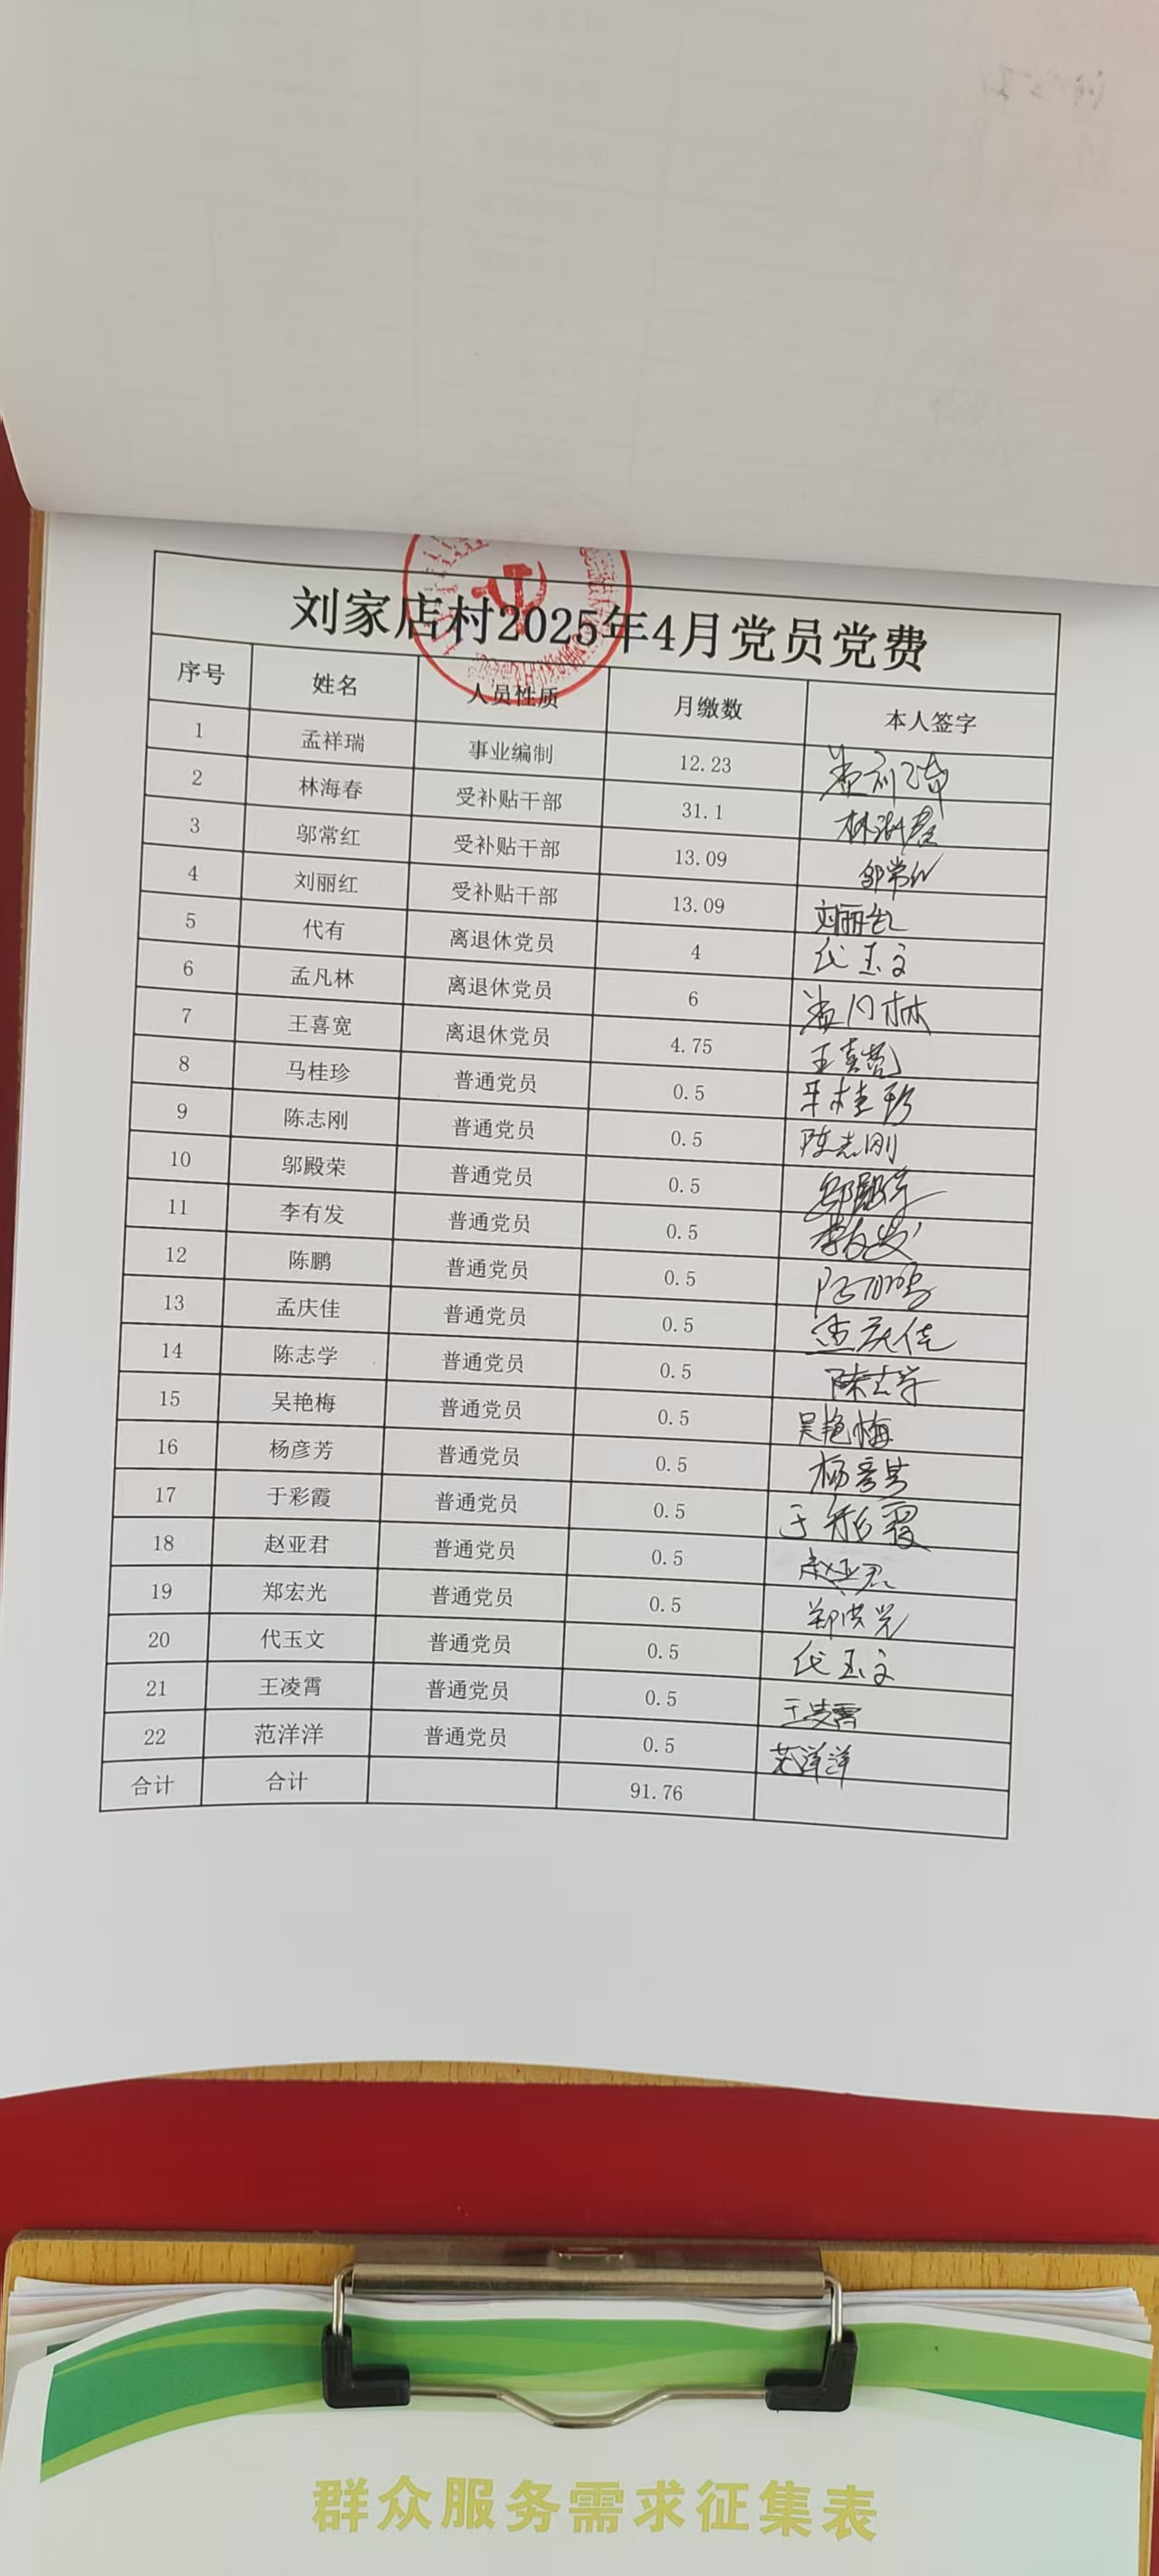 刘家店村2025年4月党员党费
序号 姓名 人员性质 月缴数 本人签字
1 孟祥瑞 事业编制 12.23 孟祥瑞
2 林海春 受补贴干部 31.1 林海春
3 邬常红 受补贴干部 13.09 邬常红
4 刘丽红 受补贴干部 13.09 刘丽红
5 代有 离退休党员 4 代玉文
6 孟凡林 离退休党员 6 孟凡林
7 王喜宽 离退休党员 4.75 王喜宽
8 马桂珍 普通党员 0.5 桂珍
9 陈志刚 普通党员 0.5 陈志刚
10 邬殿荣 普通党员 0.5 邬殿荣
11 李有发 普通党员 0.5 李有发
12 陈鹏 普通党员 0.5 陈鹏
13 孟庆佳 普通党员 0.5 孟庆佳
14 陈志学 普通党员 0.5 陈志学
15 吴艳梅 普通党员 0.5 吴艳梅
16 杨彦芳 普通党员 0.5 杨彦芳
17 于彩霞 普通党员 0.5 于彩霞
18 赵亚君 普通党员 0.5 赵亚君
19 郑宏光 普通党员 0.5 郑洪光
20 代玉文 普通党员 0.5 代玉文
21 王凌霄 普通党员 0.5 王凌霄
22 范洋洋 普通党员 0.5 范洋洋
合计 合计 91.76
群众服务需求征集表